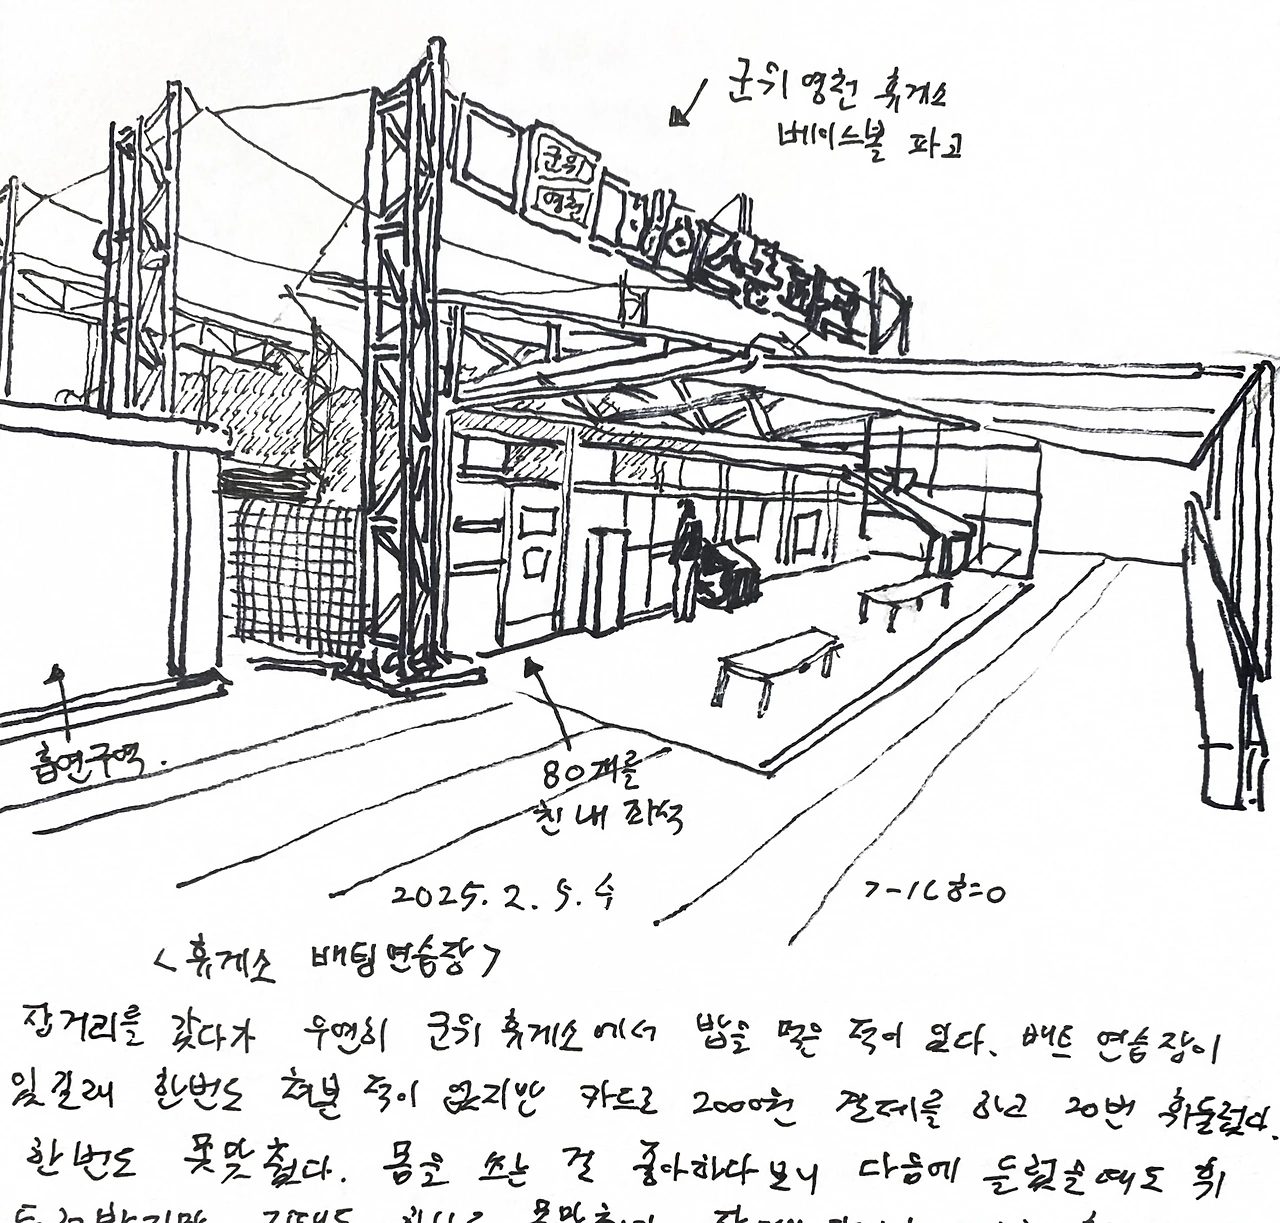 군위영천 휴게소
베이스볼 파크
군위
영천
흡연구역.
80개를
친 내 좌석
2025. 2. 5. 수
<휴게소 배팅연습장>
장거리를 갔다가 우연히 군위 휴게소에서 밥을 먹은 적이 있다. 배트 연습장이
있길래 한번도 쳐본 적이 없지만 카드로 2000원 결제를 하고 20번 휘둘렀다.
한번도 못맞췄다. 몸을 쓰는 걸 좋아하다보니 다음에 들렀을때도 휘